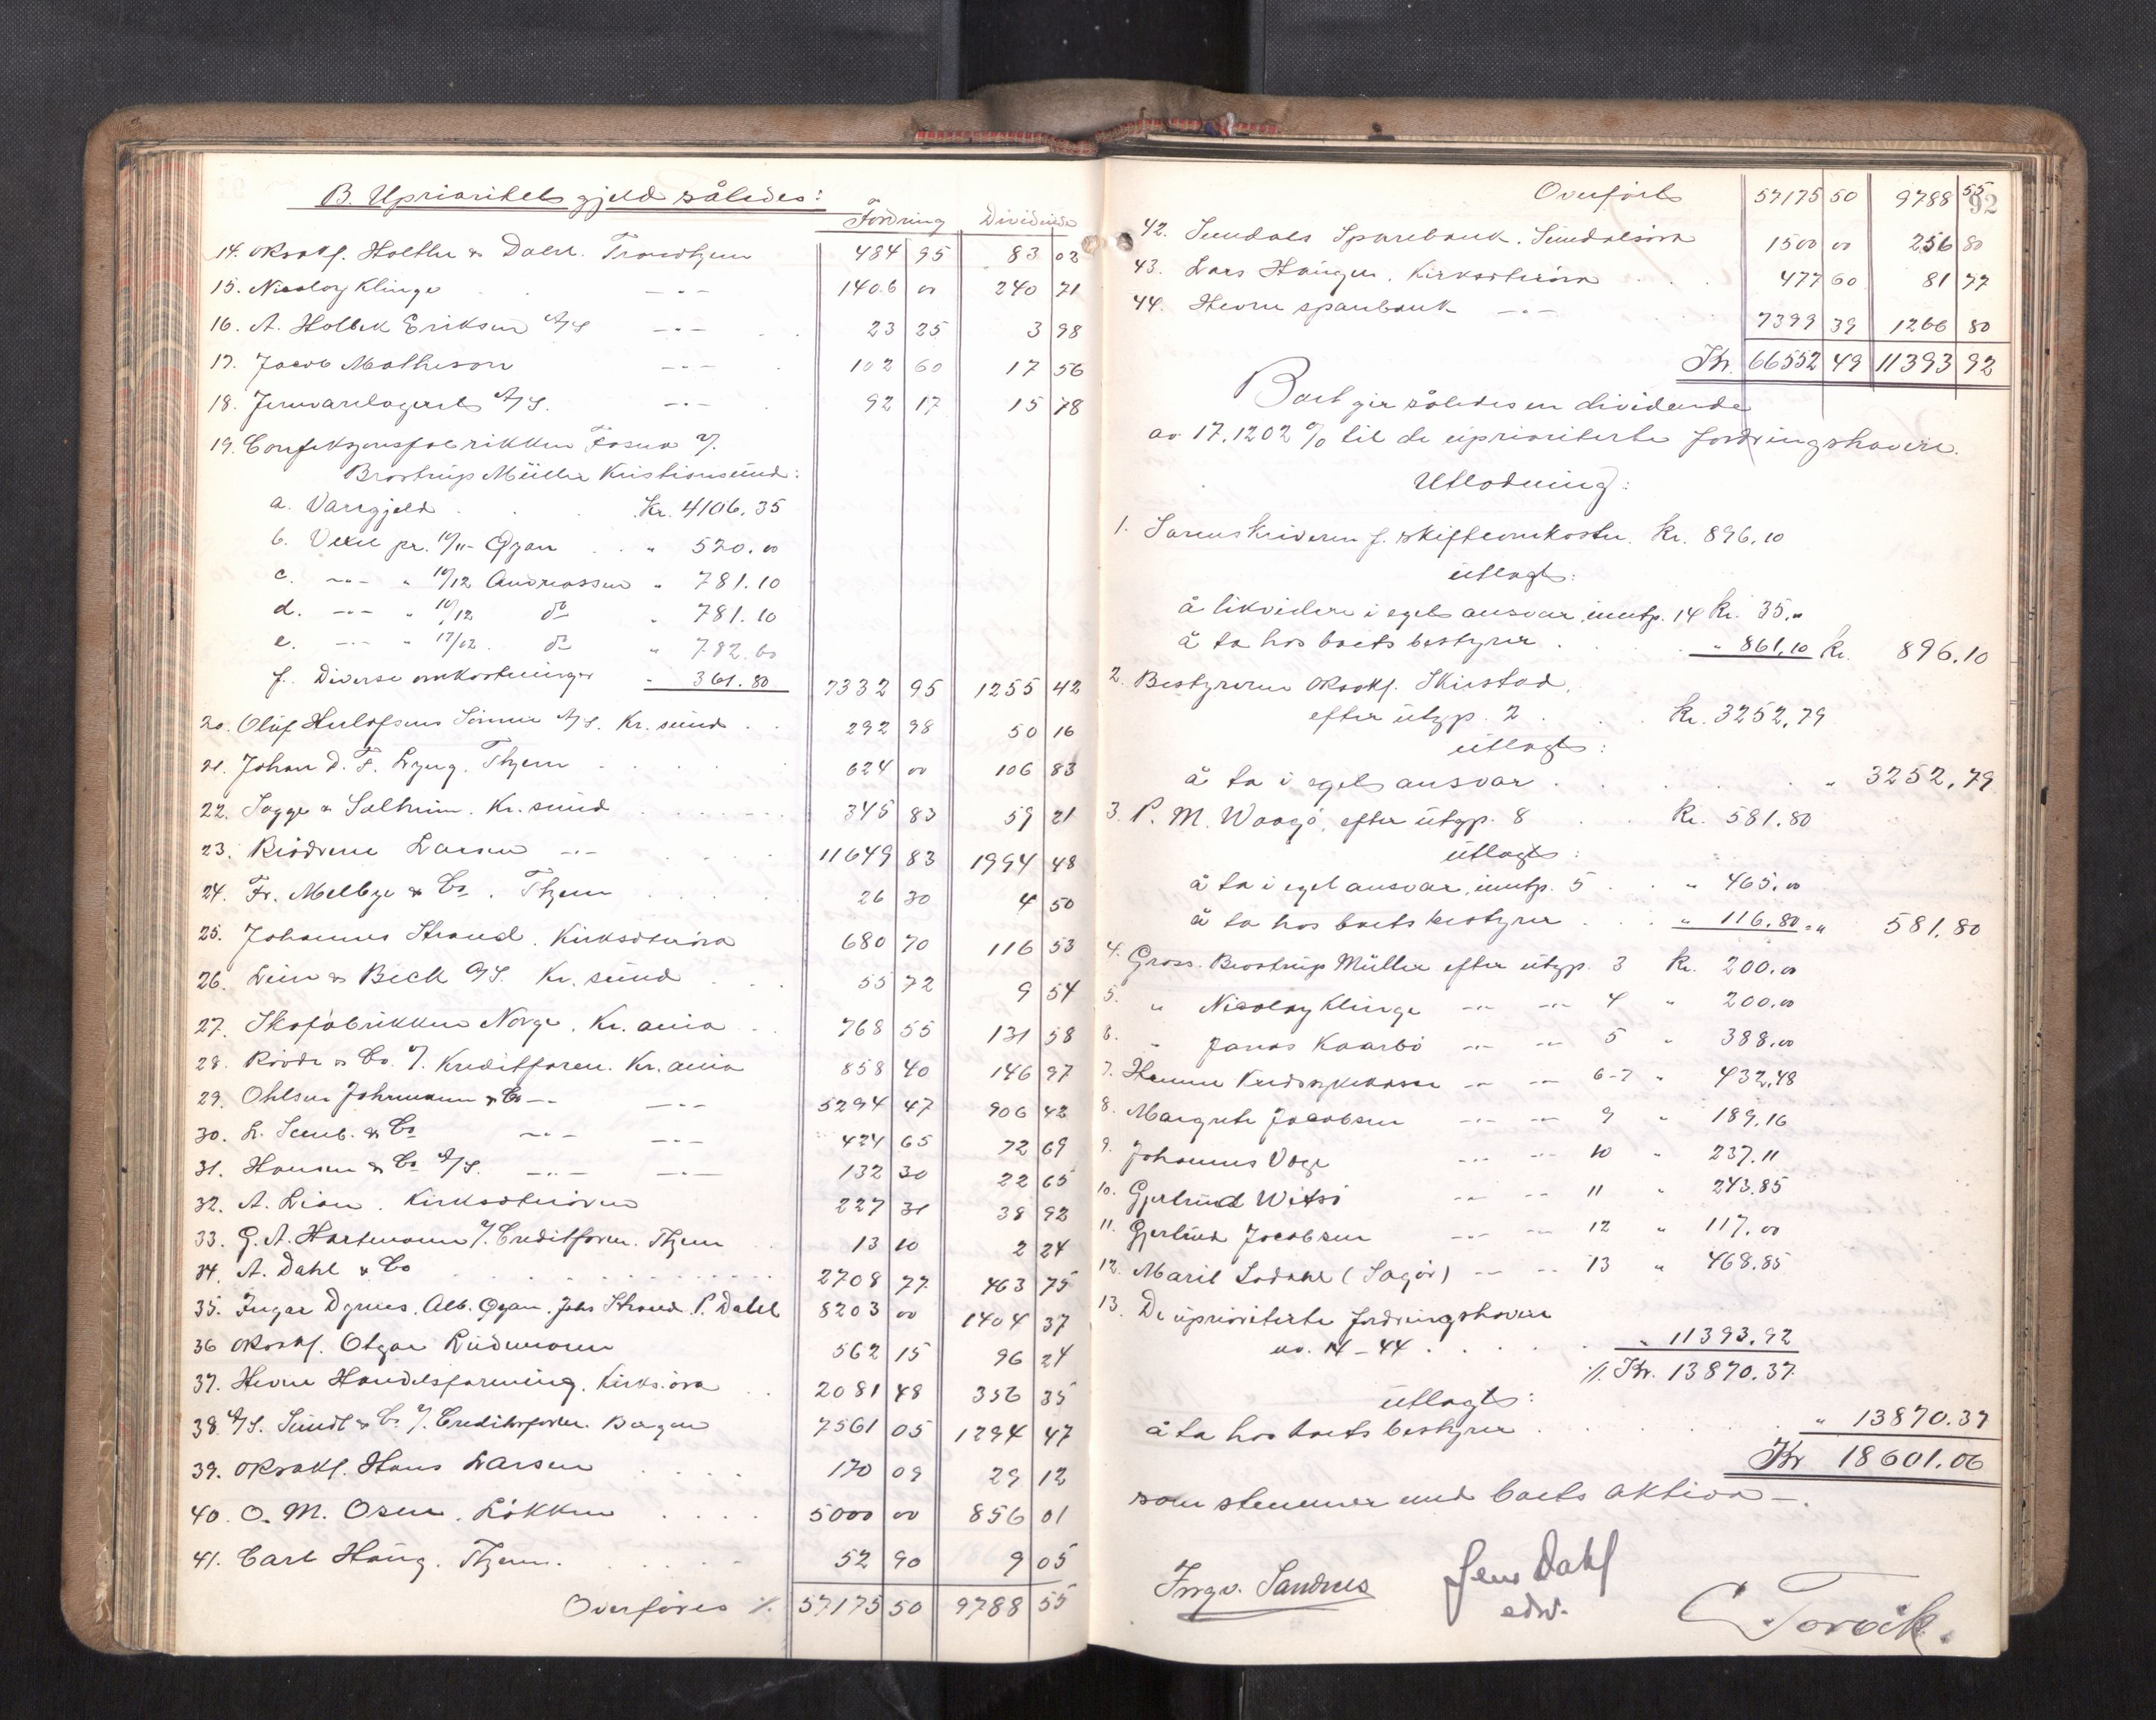 B. Uprioritets gjeld således:
Fordring Dividende
14. Orsakf. Holthe & Dahl. Trondhjem 484 95 83 02
15. Nicolay Klinge —"— 1406 00 240 71
16. A. Holbek Eriksen A/S —"— 23 25 3 98
17. Jacob Matheson —"— 102 60 17 56
18. Jernvarelageret A/S. —"— 92 17 15 78
19. Confeksjonsfabrikken Fosna v/.
Brostrup Müller Kristiansund:
a. Varegjeld Kr. 4106.35
b. Vexel pr. 10/11 - Øyan " 520.00
c. —"— " 10/12 Andreassen " 781.10
d. —"— " 10/12 do " 781.10
e. —"— " 17/12 do " 782.60
f. Diverse omkostninger " 361.80 7332 95 1255 42
20. Oluf Herlofsens Sønner A/S. Kr. sund 292 98 50 16
21. Johan D. F. Lyng. Thjem 624 00 106 83
22. Sagge & Solheim. Kr. sund 345 83 59 21
23. Brødrene Larsen —"— 11649 83 1994 48
24. Fr. Melbye & Co. Thjem 26 30 4 50
25. Johannes Strand. Kirksæterøra 680 70 116 53
26. Lein & Beck A/S. Kr. sund 55 72 9 54
27. Skofabrikken Norge. Kr. ania 768 55 131 58
28. Rovde & Co. v/. Kreditforen. Kr. ania 858 40 146 97
29. Ohlsen Johrmann & Co —"— —"— 5294 47 906 42
30. L. Semb. & Co —"— —"— 424 65 72 69
31. Hansen & Co A/S. —"— —"— 132 30 22 65
32. A. Lian. Kirksæterøren 227 31 38 92
33. G. A. Hartmann v/. Creditforen. Thjem 13 10 2 24
34. A. Dahl & Co 2708 77 463 75
35. Ingar Dyrnes, Alb. Øyan. Johs Strand. P. Dahl 8203 00 1404 37
36 Orsakf. Otgar Lindemann 562 15 96 24
37. Hevne Handelsforening. Kirks.øra 2081 48 356 35
38. A/S. Sundt & Co. v/. Creditorforen. Bergen 7561 05 1294 47
39. Orsakf. Hans Larsen 170 09 29 12
40. O. M. Osen. Løkken 5000 00 856 01
41. Carl Haug. Thjem. 52 90 9 05
Overføres %. 57175 50 9788 55
92
Overført 57175 50 9788 55
42. Sundals Sparebank. Sundalsøra 1500 00 256 80
43. Lars Haugen. Kirksæterøra 477 60 81 77
44. Hevne sparebank —"— 7399 39 1266 80
Kr. 66552 49 11393 92
Boet gir således en dividende
av 17.1202 % til de uprioriterte fordringshavere.
Utlodning:
1. Sorenskriveren f. skifteomkostn. Kr. 896,10
utlagt:
å likvidere i eget ansvar, inntp. 14 Kr. 35."
å ta hos boets bestyrer " 861,10 Kr. 896.10
2. Bestyreren Orsakf. Skirstad,
efter utgp. 2 Kr. 3252,79
utlagt:
å ta i eget ansvar " 3252,79
3. P. M. Waagø, efter utgp. 8 Kr. 581.80
utlagt:
å ta i eget ansvar, inntp. 5 " 465.00
å ta hos boets bestyrer " 116.80 " 581.80
4. Gross. Brostrup Müller efter utgp. 3 Kr. 200.00
5. " Nicolay Klinge —"— —"— 4 " 200.00
6. " Jonas Kaarbø —"— —"— 5 " 388.00
7. Hevne Kredssykekasse —"— —"— 6-7 " 432,48
8. Margrete Jacobsen —"— —"— 9 " 189.16
9. Johannes Vage —"— —"— 10 " 237.11
10. Gjertrud Witsø —"— —"— 11 " 243.85
11. Gjertrud Jacobsen —"— —"— 12 " 117.00
12. Marit Lodahl (Sagør) —"— —"— 13 " 468.85
13. De uprioriterte fordringshavere
no. 14 - 44 " 11393.92
%. Kr. 13870.37.
utlagt:
å ta hos boets bestyrer " 13870.37
Kr 18601.06
som stemmer med boets aktiva —.
Ingv. Sandnes
Jens Dahl
edsv.
C. Torvik.